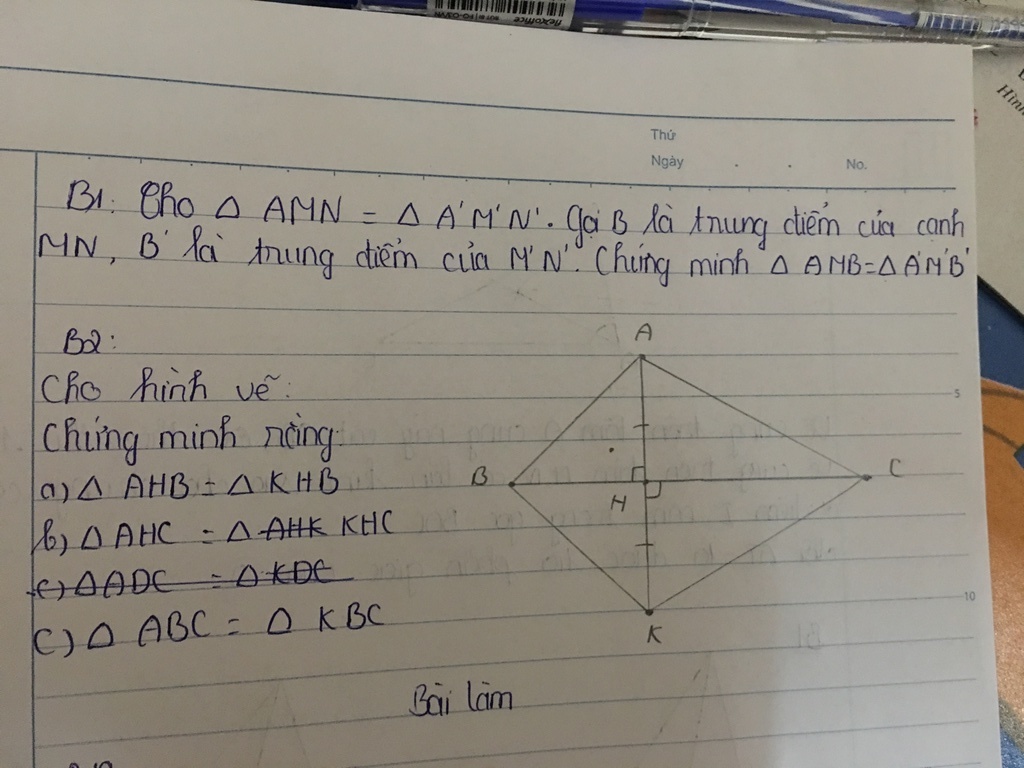 flexoffice
Thứ
Ngày . . No.
B1: Cho Δ AMN = Δ A'M'N'. Gọi B là trung điểm của cạnh
MN, B' là trung điểm của M'N'. Chứng minh Δ AMB = Δ A'M'B'
B2:
Cho hình vẽ:
Chứng minh rằng
a) Δ AHB = Δ KHB
b) Δ AHC = Δ AHK KHC
c) Δ ADC = Δ KDC
C) Δ ABC = Δ KBC
A
B
H
C
K
5
10
Bài làm